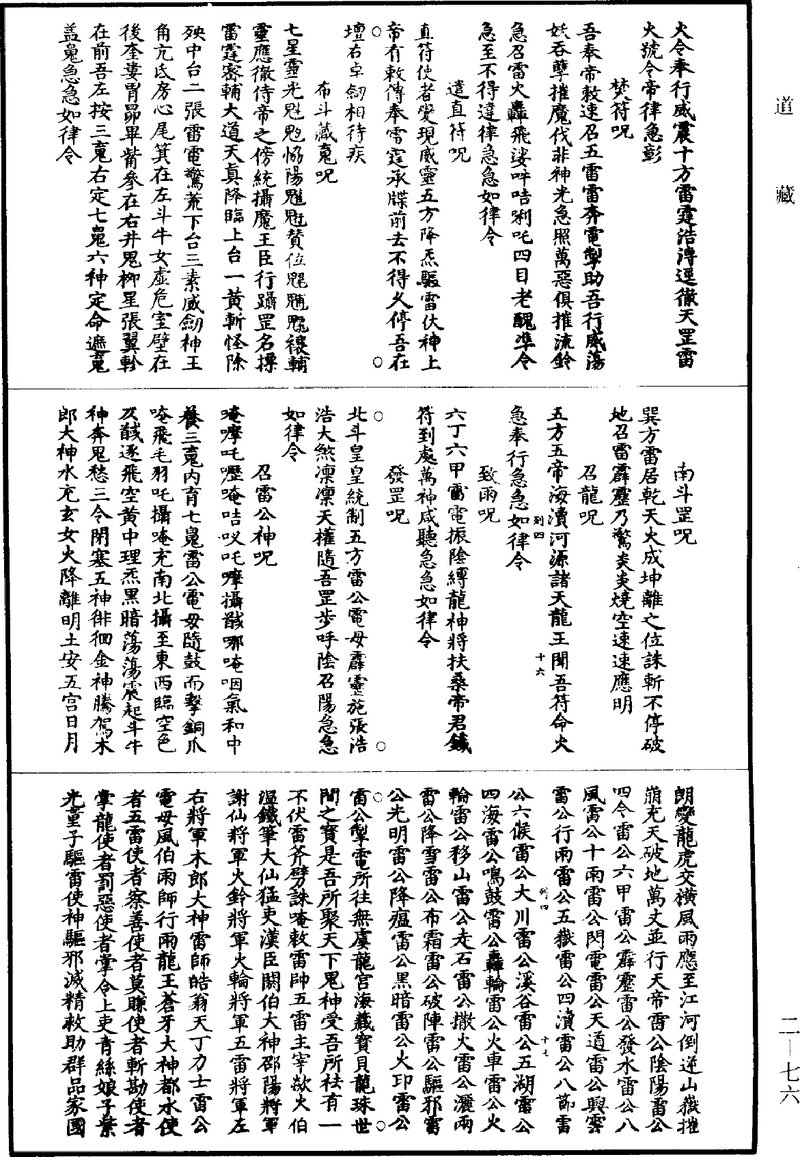 道藏
火令奉行威震十方雷霆浩濤逕徹天罡雷
火號令帝律急彰
焚符呪
吾奉帝敕速召五雷雷奔電掣助吾行威蕩
妖吞孽摧魔伐非神光急照萬惡俱摧流鈴
急召雷火轟飛娑吽咭唎吒四目老醜準令
急至不得違律急急如律令
遣直符呪
直符使者變現威靈五方降炁驅雷伏神上
帝有敕傳奉雷霆承牒前去不得久停吾在
壇右卓劒相待疾
布斗藏䰟呪
七星靈光魁䰢恊陽魓䰡賛位䰢魒輔
靈應徹侍帝之傍統攝魔王臣行躡罡名操
雷霆密輔大道天真降臨上台一黃斬怪除
殃中台二張雷電驚荒下台三素威劒神王
角亢氐房心尾箕在左斗牛女虛危室壁在
後奎婁胃昴畢觜參在右井鬼柳星張翼軫
在前吾左按三䰟右定七䰟六神定命遮䰟
蓋䰟急急如律令
南斗罡呪
巽方雷居乾天火成坤離之位誅斬不停破
地召雷霹靂乃驚炎炎燒空速速應明
召龍呪
五方五帝海瀆河源諸天龍王聞吾符命火
急奉行急急如律令
致雨呪
六丁六甲雷電振陰縛龍神將扶桑帝君鐵
符到處萬神咸聽急急如律令
發罡呪
北斗皇皇統制五方雷公電母霹靂施張浩
浩大煞凜凜天權隨吾罡步呼陰召陽急急
如律令
召雷公神呪
唵摩吒㗚唵咭㕥吒㘄攝馘哪唵咽氣和中
養三䰟內育七䰟雷公電母隨鼓而擊銅爪
唵飛毛羽吒攝唵充南北攝至東西臨空色
及馘逐飛空黃中理炁黑暗蕩蕩震起斗牛
神奔鬼愁三令閉塞五神徘徊金神騰駕木
郎大神水充玄女火降離明土安五宮日月
朗變龍虎交橫風雨應至江河倒逆山嶽摧
崩充天破地萬丈並行天帝雷公陰陽雷公
四令雷公六甲雷公霹靂雷公發水雷公八
風雷公十雨雷公閃電雷公天道雷公興雲
雷公行雨雷公五嶽雷公四瀆雷公八節雷
公六候雷公大川雷公溪谷雷公五湖雷公
四海雷公鳴鼓雷公轟輪雷公火車雷公火
輪雷公移山雷公走石雷公撒火雷公灑雨
雷公降雪雷公布霜雷公破陣雷公驅邪雷
公光明雷公降瘟雷公黑暗雷公火印雷公
雷公掣電所往無虞龍宮海藏寶貝龍珠世
間之寶是吾所聚天下鬼神受吾所祛有一
不伏雷斧劈誅唵敕雷帥五雷主宰歘火伯
溫鐵筆大仙猛吏漢臣閼伯大神邵陽將軍
謝仙將軍火鈴將軍火輪將軍五雷將軍左
右將軍木郎大神雷師皓翁天丁力士雷公
電母風伯雨師行雨龍王蒼牙大神都水使
者五雷使者察善使者莫賺使者斬勘使者
掌龍使者罰惡使者掌令上吏青絲娘子業
光童子驅雷使神驅邪滅精救助群品家國
二—七六